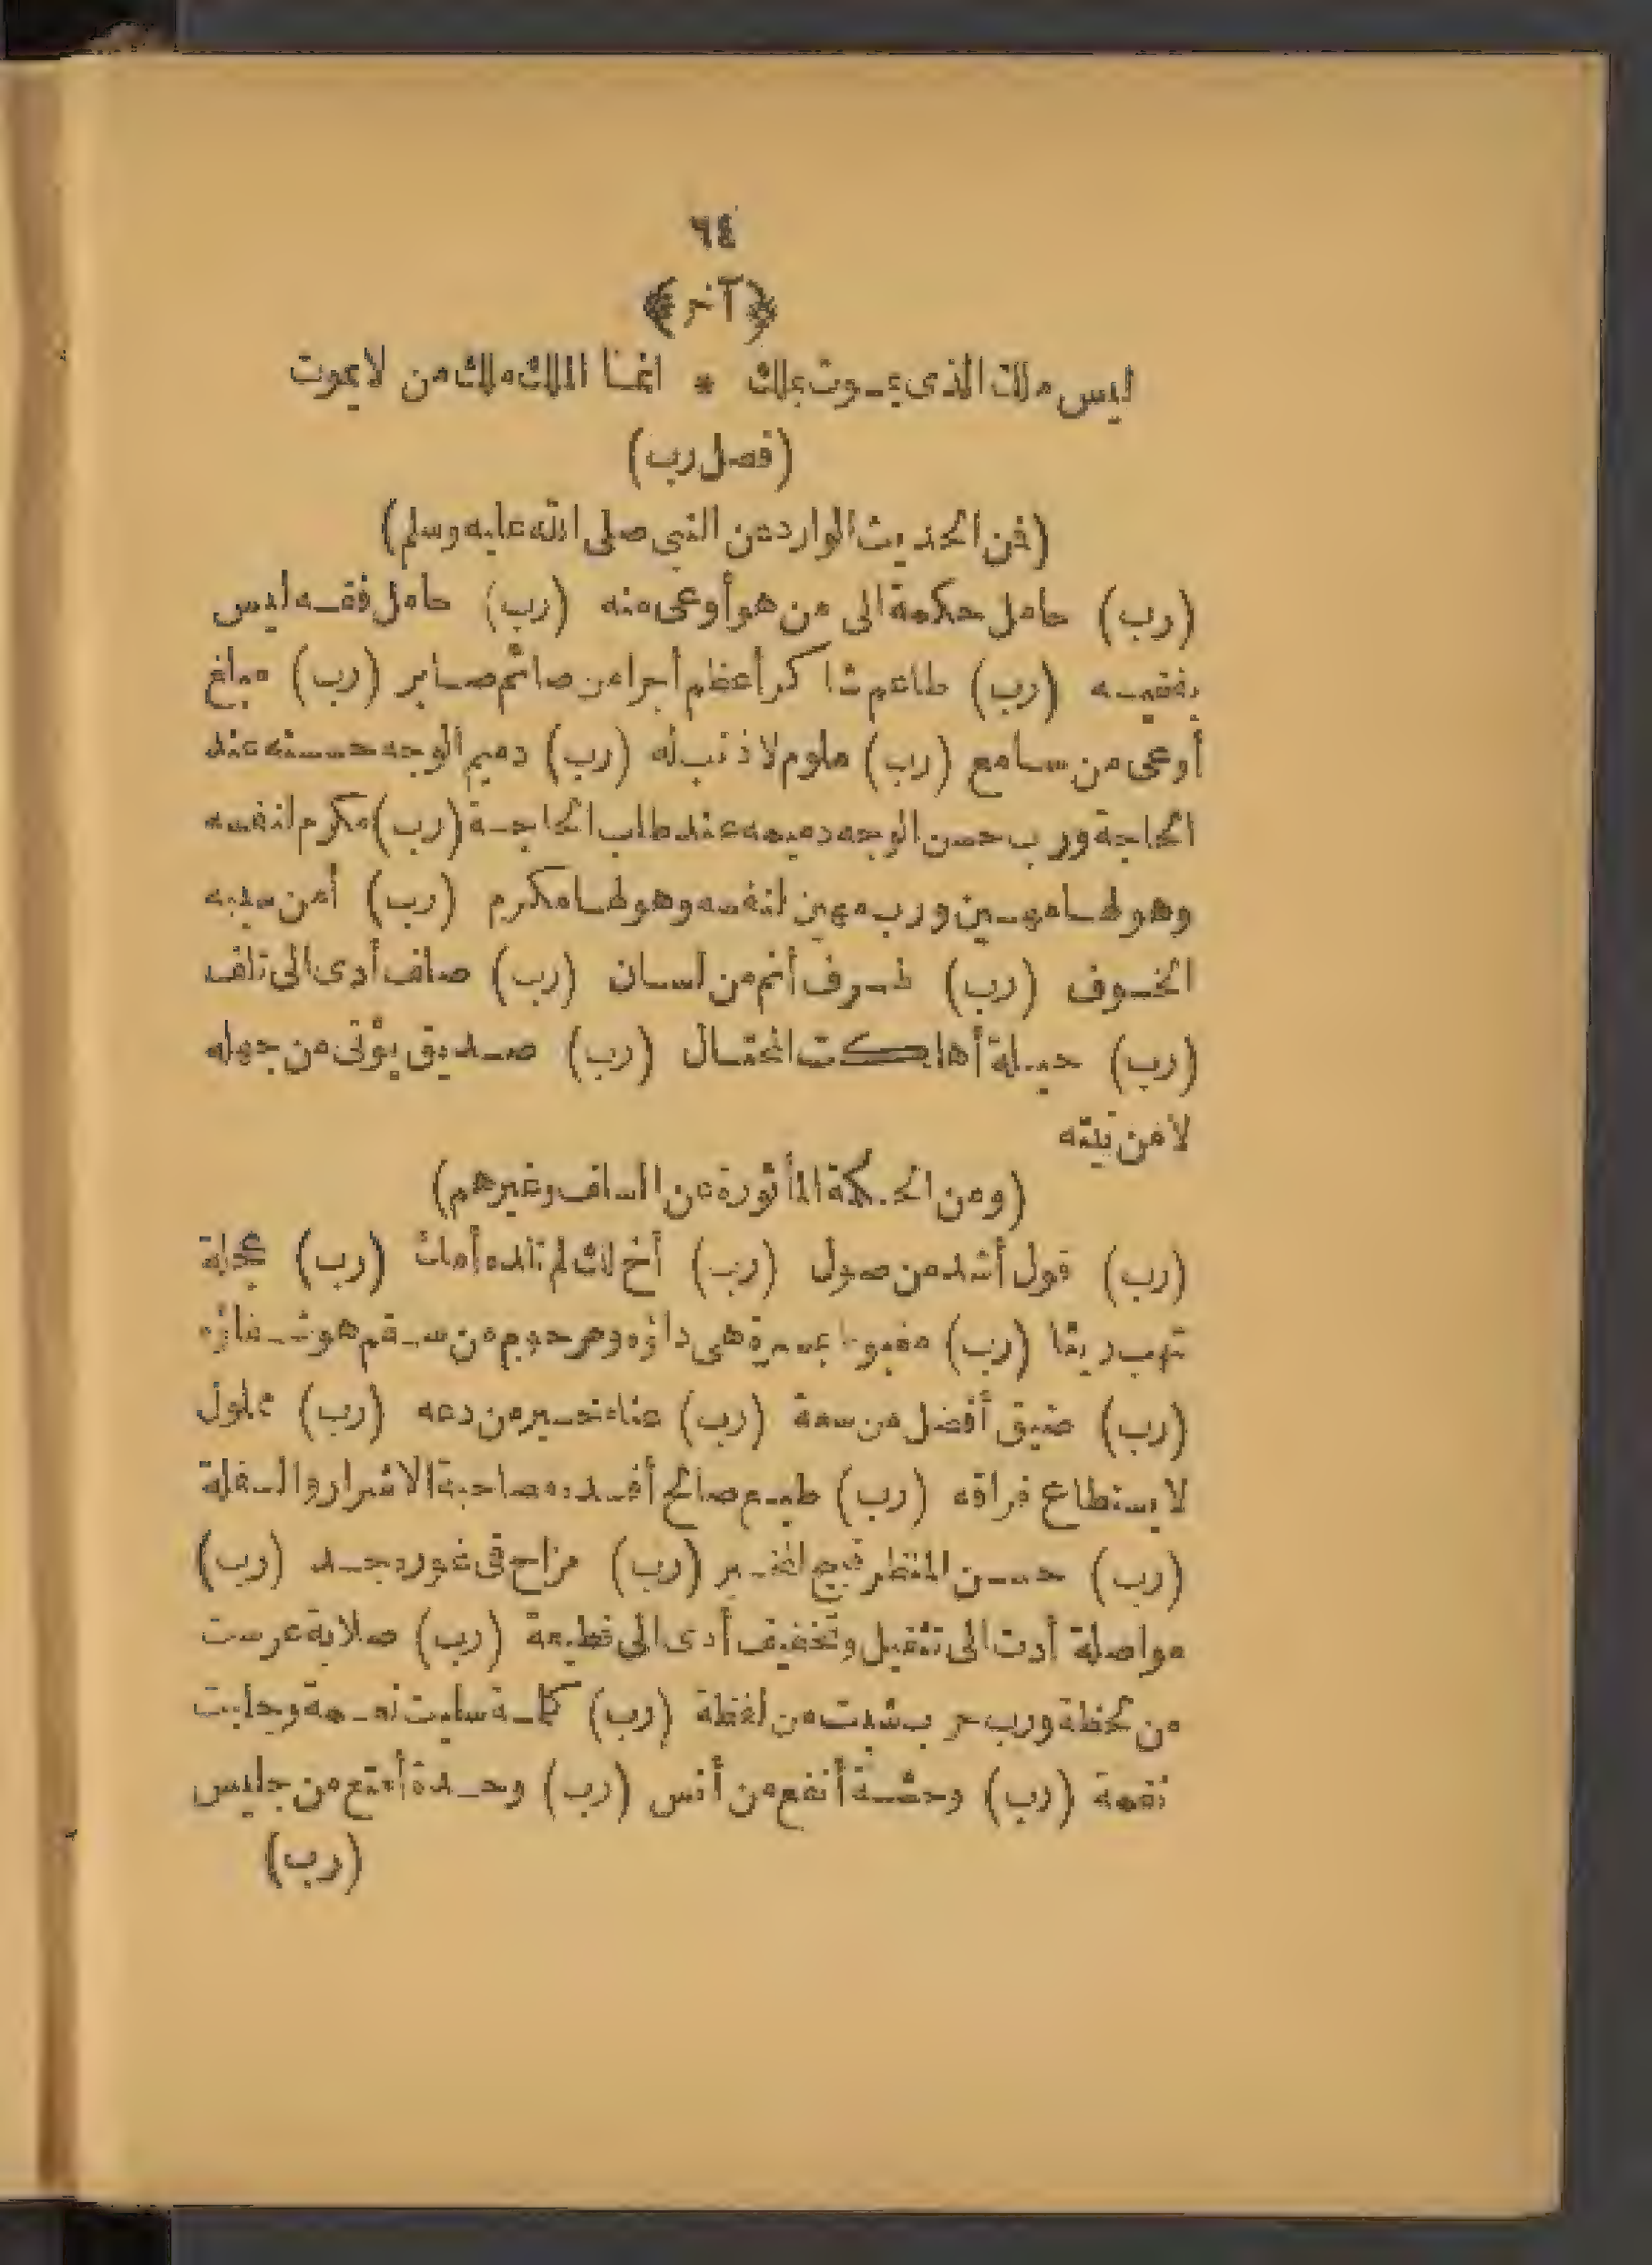 ٦٤
﴿آخر﴾
ليس ملك الذى يموت بملك * انما الملك ملك من لا يموت
(فصل رب)
(فمن الحديث الوارد عن النبي صلى الله عليه وسلم)
(رب) حامل حكمة الى من هو أوعى منه (رب) حامل فقه ليس
بفقيه (رب) طاعم شاكر أعظم أجرا من صائم صابر (رب) مبلغ
أوعى من سامع (رب) ملوم لا ذنب له (رب) دميم الوجه حسنه عند
الحاجة ورب حسن الوجه دميمه عند طلب الحاجة (رب) مكرم لنفسه
وهو لها مهين ورب مهين لنفسه وهو لها مكرم (رب) أمن سببه
الخوف (رب) طرف أنم من لسان (رب) صلف أدى الى تلف
(رب) حيلة أهلكت المحتال (رب) صديق يؤتى من جهله
لا من نيته
(ومن الحكمة المأثورة عن السلف وغيرهم)
(رب) قول أشد من صول (رب) أخ لك لم تلده أمك (رب) عجلة
تهب ريثا (رب) مغبوط بمسرة هى داؤه ومرحوم من سقم هو شفاؤه
(رب) ضيق أفضل من سعة (رب) عناء خير من دعه (رب) مملول
لا يستطاع فراقه (رب) طبع صالح أفسده مصاحبة الاشرار والسفلة
(رب) حسن المنظر قبيح المخبر (رب) مزاح فى غوره جد (رب)
مواصلة أدت الى تثقيل وتخفيف أدى الى قطيعة (رب) صلابة غرست
من لحظة ورب حرب شبت من لفظة (رب) كلمة سلبت نعمة وجلبت
نقمة (رب) وحشة أنفع من أنس (رب) وحدة أمتع من جليس
(رب)